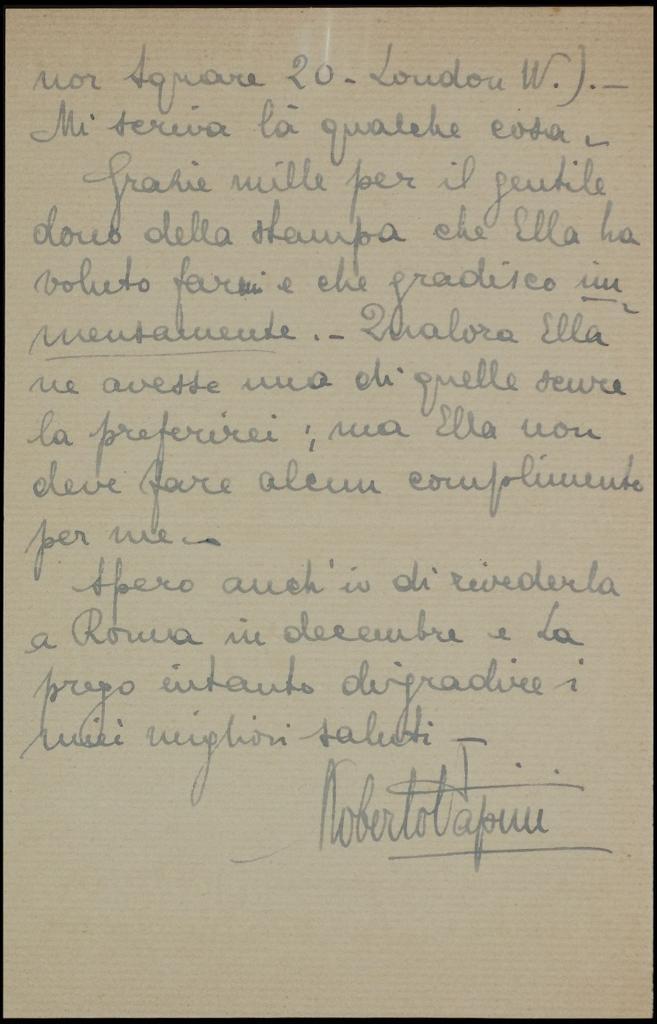 nor Square 20 - London W.). -
Mi scriva là qualche cosa -
Grazie mille per il gentile
dono della stampa che Ella ha
voluto farmi e che gradisco im
mensamente. - Qualora Ella
ne avesse una di quelle scure
la preferirei; ma Ella non
deve fare alcun complimento
per me. -
Spero anch'io di rivederla
a Roma in decembre e La
prego intanto di gradire i
miei migliori saluti -
Roberto Papini